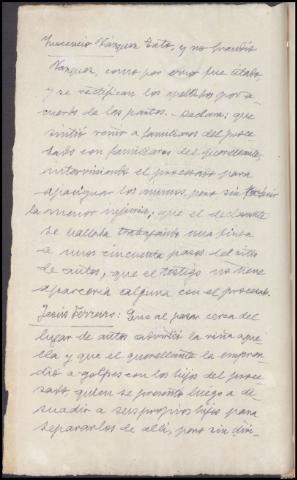 Inocencio Vázquez Tato, y no Francisco
Vázquez, como por error fue citado
y se rectifican los apellidos por a-
cuerdo de las partes. - Declara: que
sintió reñir a familiares del proce-
sado con familiares del querellante,
interviniendo el procesado para
apaciguar los mismos, pero sin
la menor injuria; que el declarante
se hallaba trabajando una finca
a unos cincuenta pasos del sitio
de autos; que el testigo no tiene
aparcería alguna con el procesado.
Jesús Ferreiro: Que al pasar cerca del
lugar de autos advirtió la riña aque-
lla y que el querellante la empren-
dió a golpes con los hijos del proce-
sado, quien se presentó luego a di-
suadir a sus propios hijos para
separarlos de allí, pero sin diri-